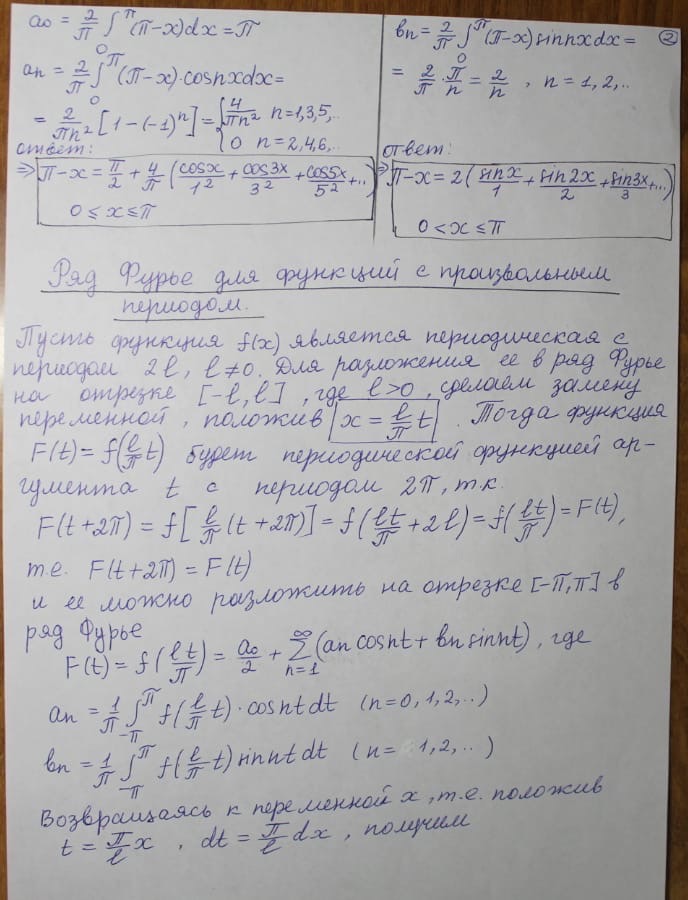 a₀ = 2/π ∫₀^π (π-x)dx = π
aₙ = 2/π ∫₀^π (π-x)·cosnxdx =
= 2/(πn²) [1-(-1)ⁿ] = { 4/(πn²) n=1,3,5,..
0 n=2,4,6,..
ответ:
⇒ π-x = π/2 + 4/π (cosx/1² + cos3x/3² + cos5x/5² +..)
0 ≤ x ≤ π
②
bₙ = 2/π ∫₀^π (π-x)sinnxdx =
= 2/π · π/n = 2/n , n = 1, 2,..
ответ:
⇒ π-x = 2(sinx/1 + sin2x/2 + sin3x/3 +...)
0 < x ≤ π
Ряд Фурье для функций с произвольным
периодом.
Пусть функция f(x) является периодическая с
периодом 2l, l≠0. Для разложения ее в ряд Фурье
на отрезке [-l, l] , где l>0, сделаем замену
переменной, положив x = l/π t . Тогда функция
F(t) = f(l/π t) будет периодической функцией ар-
гумента t с периодом 2π, т.к.
F(t+2π) = f[l/π (t+2π)] = f(lt/π + 2l) = f(lt/π) = F(t),
т.е. F(t+2π) = F(t)
и ее можно разложить на отрезке [-π,π] в
ряд Фурье
F(t) = f(lt/π) = a₀/2 + ∑ₙ₌₁^∞ (aₙ cosnt + bₙ sinnt), где
aₙ = 1/π ∫₋π^π f(l/π t)·cosntdt (n=0,1,2,..)
bₙ = 1/π ∫₋π^π f(l/π t)sinntdt (n= 1,2,..)
Возвращаясь к переменной x, т.е. положив
t = π/l x , dt = π/l dx , получим